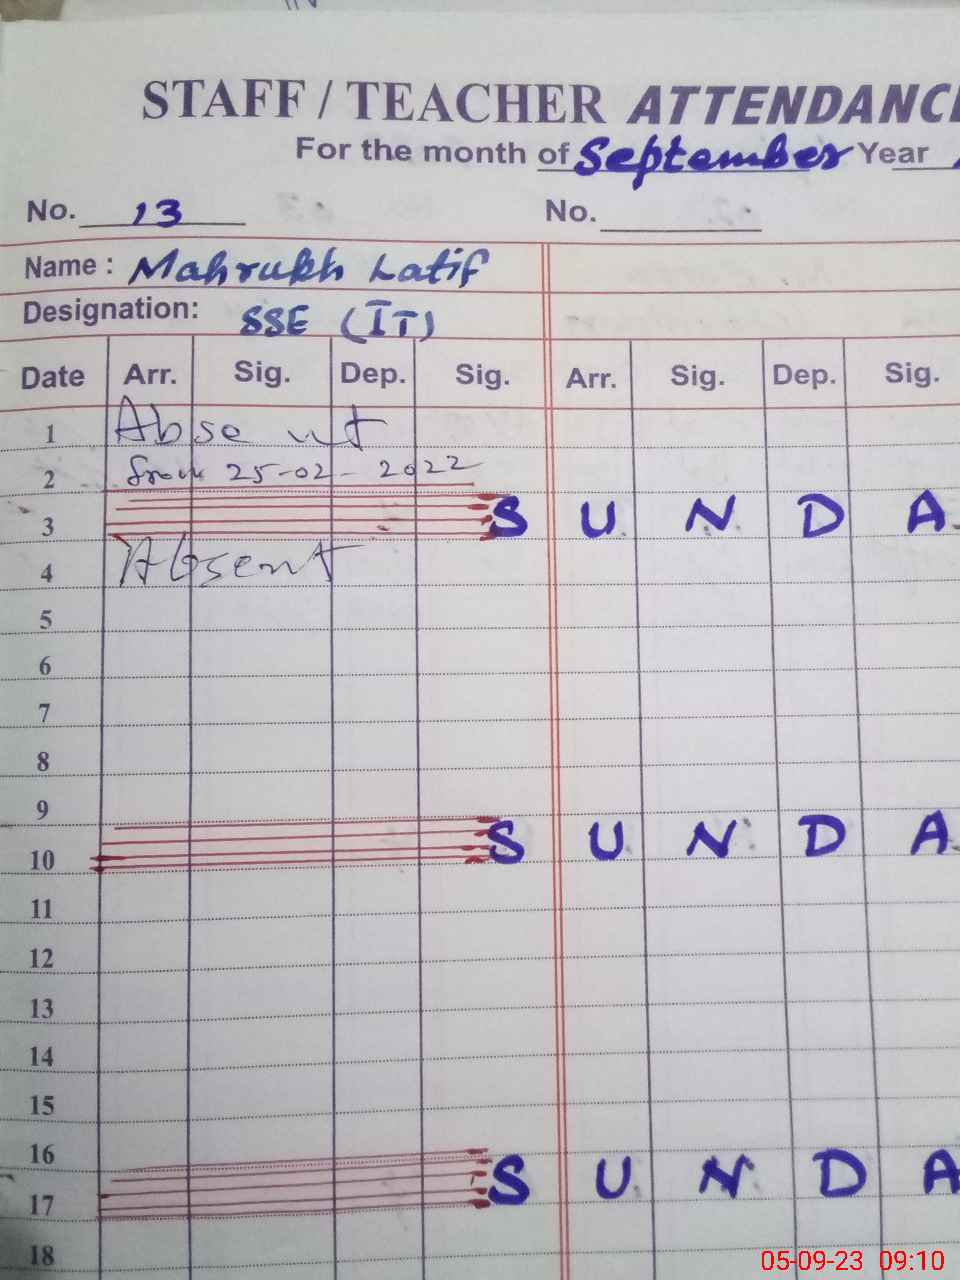 STAFF / TEACHER ATTENDANC
For the month of September Year
No. 13 No.
Name : Mahrukh Latif
Designation: SSE (IT)
Date Arr. Sig. Dep. Sig. Arr. Sig. Dep. Sig.
1 Absent
2 from 25-02-2022
3 S U N D A
4 Absent
5
6
7
8
9
10 S U N D A
11
12
13
14
15
16
17 S U N D A
18
05-09-23 09:10